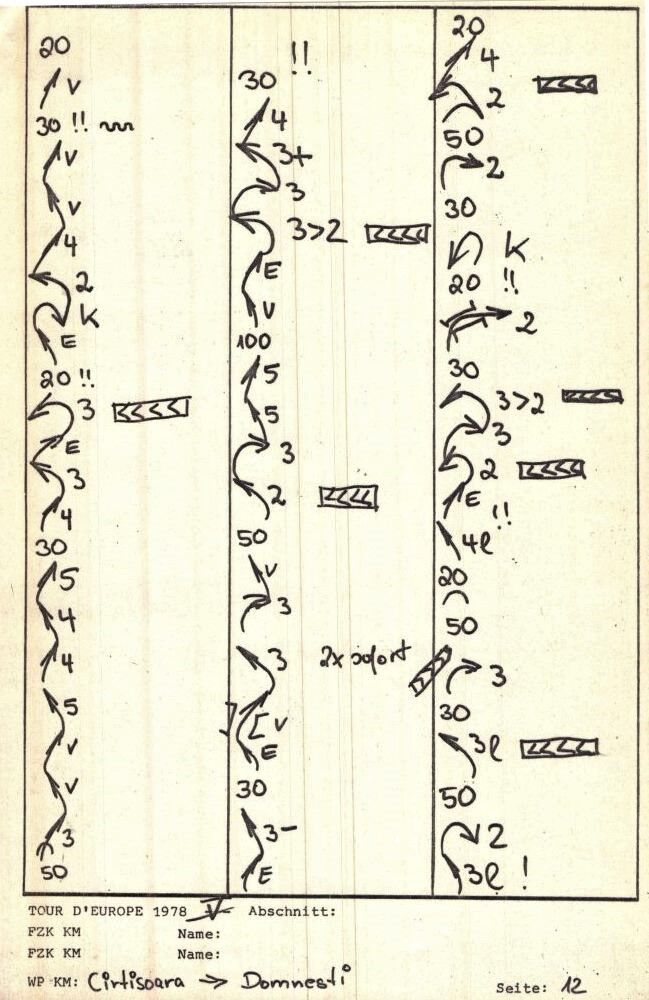 20
V
30 !!
V
V
4
2
K
E
20 !!
3
E
3
4
30
5
4
4
5
V
V
3
50
!!
30
4
3+
3
3>2
E
V
100
5
5
3
2
50
V
3
3
2x sofort
V
E
30
3-
E
20
4
2
50
2
30
K
20 !!
2
30
3>2
3
2
E
!!
4l
20
50
3
30
3l
50
2
3l !
TOUR D'EUROPE 1978 V Abschnitt:
FZK KM Name:
FZK KM Name:
WP KM: Cirtisoara → Domnesti
Seite: 12